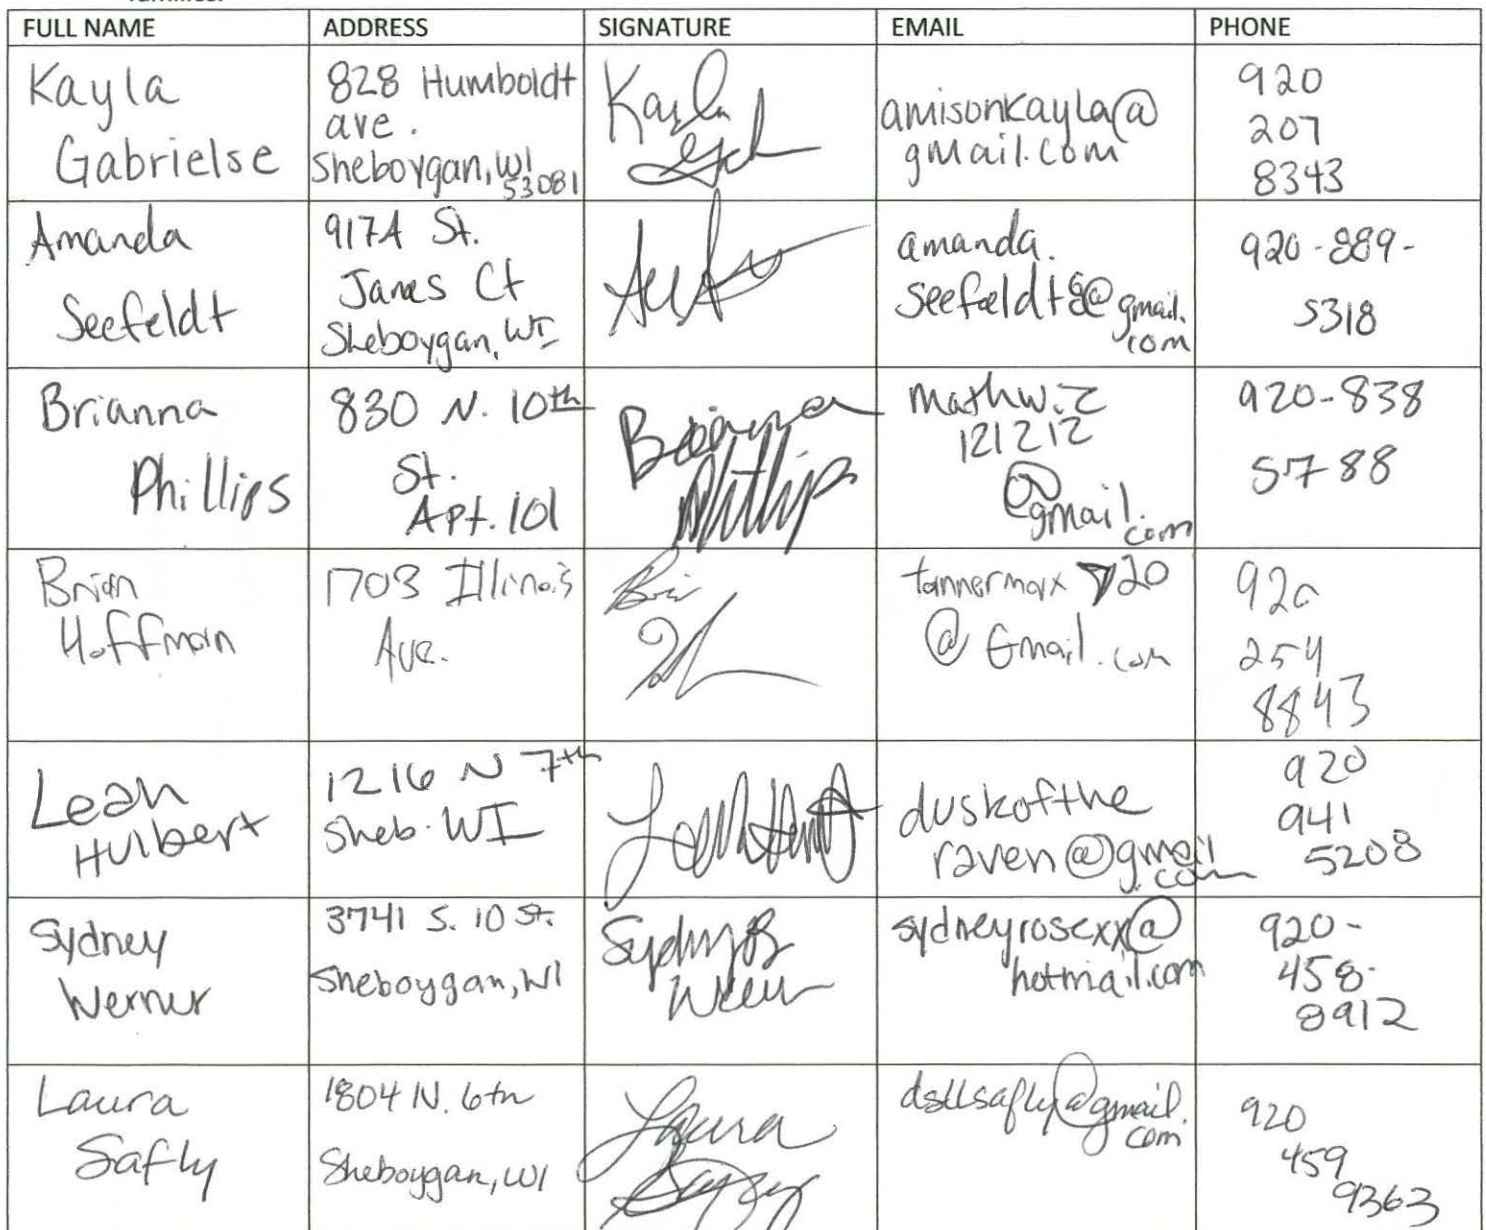 FULL NAME ADDRESS SIGNATURE EMAIL PHONE
Kayla
Gabrielse
828 Humboldt
ave.
Sheboygan, WI
53081
Kayla
amisonkayla@
gmail.com
920
207
8343
Amanda
Seefeldt
917A St.
James Ct
Sheboygan, WI
amanda.
seefeldt8@gmail.
com
920-889-
5318
Brianna
Phillips
830 N. 10th
St.
Apt. 101
Brianna
Phillips
mathwiz
121212
@
gmail.
com
920-838
5788
Brian
Hoffman
1703 Illinois
Ave.
@ Gmail.com
920
254
8843
Leah
Hulbert
1216 N 7th
Sheb. WI
duskofthe
raven@gmail
.com
920
941
5208
Sydney
Werner
3741 S. 10 St.
Sheboygan, WI
Sydney
sydneyrosexx@
hotmail.com
920-
458-
8912
Laura
Safly
1804 N. 6th
Sheboygan, WI
Laura
Safly
dsllsafly@gmail.
com
920
459
9363